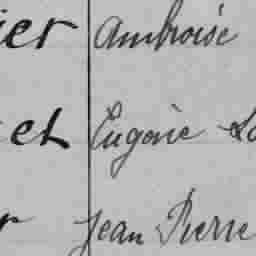 ier Ambroise
et Eugenie
r Jean Pierre